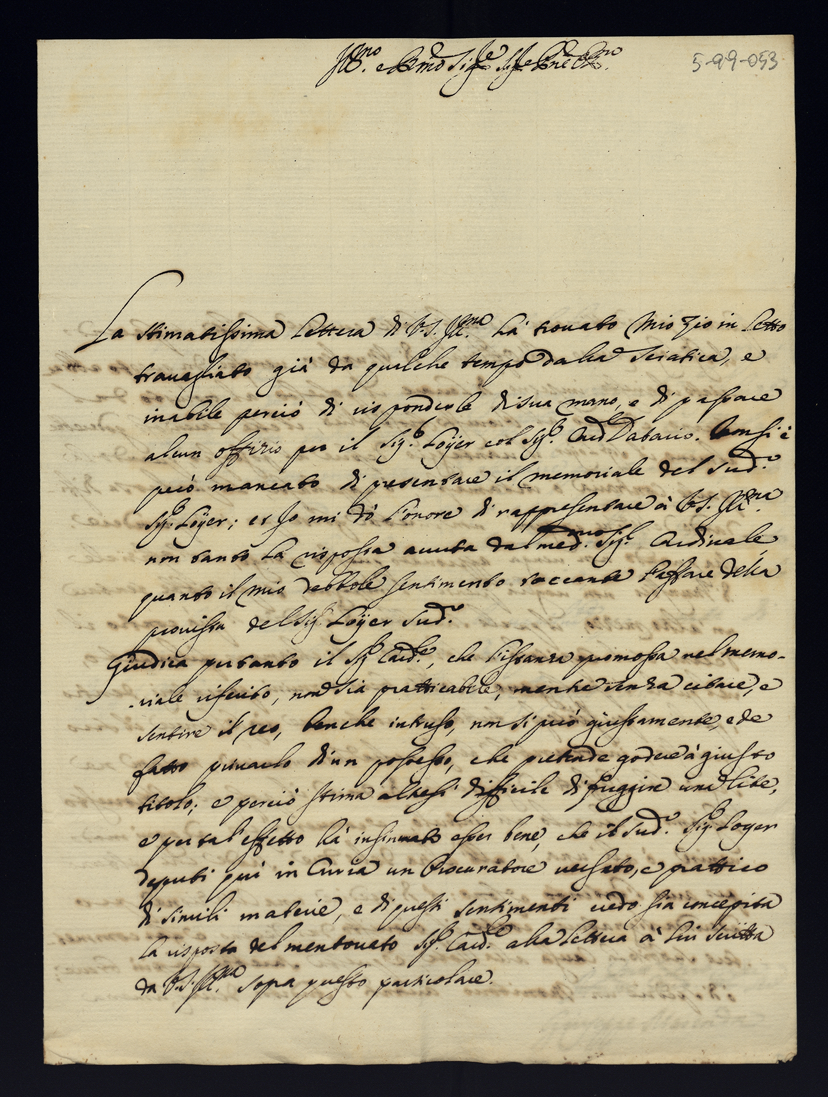 Ill.mo e R.mo Sig.re Sig.re P.ne Col.mo
5-99-053
La stimatissima lettera di V.S. Ill.ma hà trouato mio Zio in letto
trauagliato già da qualche tempo dalla Sciatica, e
inabile perciò di risponderle di sua mano, e di passare
alcun offizio per il Sig.r Loÿer col Sig.r Card. Datario. Non si è
però mancato di presentare il memoriale del Sud.o
Sig.r Loÿer; et Jo mi dò l'onore di rappresentare à V.S. Ill.ma
non tanto la risposta auuta dal med.mo Sig.r Cardinale,
quanto il mio debbole sentimento toccante l'affare della
prouista del Sig.r Loÿer Sud.o
Giudica per tanto il Sig.r Card.le, che l'istanza promossa nel memo-
riale riferito, non sia pratticabile, mentre senza citare, e
sentire il reo, benche intruso, non si può giustamente, e de
fatto priuarlo di un possesso, che pretende godere à giusto
titolo; e perciò stima altresì difficile di fuggire una lite,
e per tal'effetto hà insinuato esser bene, che il Sud.o Sig.r Loÿer
deputi quì in Curia un Procuratore uersato, e prattico
di simili materie, e di questi sentimenti credo sia concepita
la risposta del mentouato Sig.r Card.le alla lettera à lui scritta
da V.S. Ill.ma sopra questo particolare.